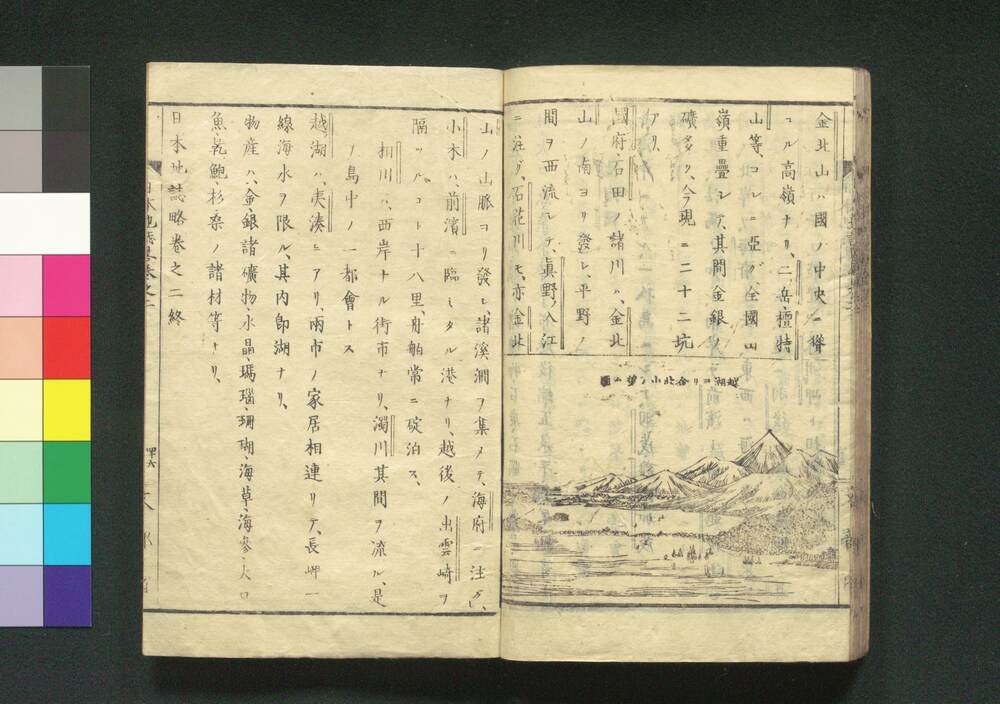 金北山ハ國ノ中央ニ聳
ユル高嶺ナリ、二岳檀特
山等、コレニ亞グ、全國山
嶺重疊シテ、其間金銀ノ
礦多ク、今現ニ二十二坑
アリ、
國府、石田ノ諸川ハ、金北
山ノ南ヨリ發シ、平野ノ
間ヲ西流シテ、眞野ノ入江
ニ注グ、石花川モ、亦金北
越湖ヨリ金北山ヲ望ム圖
山ノ山脈ヨリ發シ、諸溪澗ヲ集メテ、海府ニ注グ、
小木ハ、前濱ニ臨ミタル港ナリ、越後ノ出雲崎ヲ
隔ツルコト十八里、舟舶常ニ碇泊ス、
相川ハ、西岸ナル街市ナリ、濁川其間ヲ流ル、是
ノ島中ノ一都會トス
越湖ハ、夷湊ニアリ、兩市ノ家居相連リテ、長岬一
線海水ヲ限ル、其内即湖ナリ、
物産ハ、金、銀、諸礦物、水晶、瑪瑙、珊瑚、海草、海參、大口
魚、乾鮑、杉桑ノ諸材等ナリ、
日本地誌略卷之二終